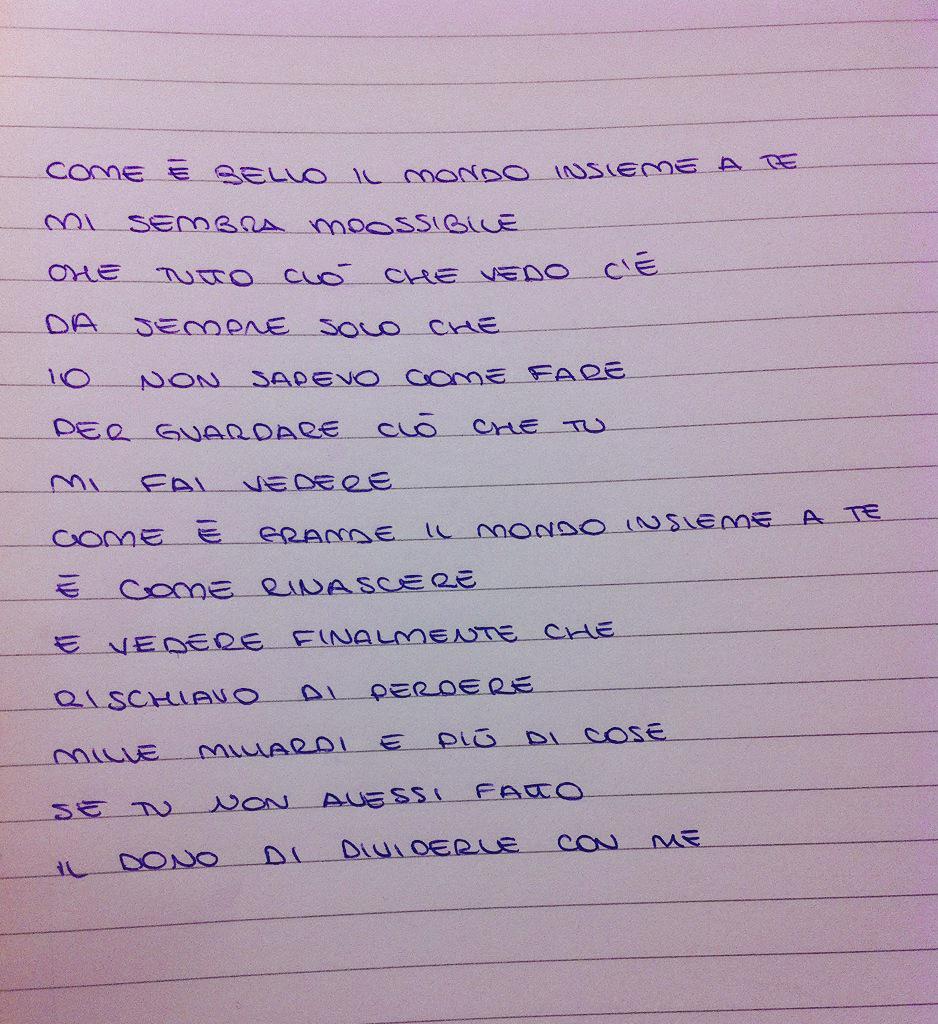 COME È BELLO IL MONDO INSIEME A TE
MI SEMBRA IMPOSSIBILE
CHE TUTTO CIÒ CHE VEDO C'È
DA SEMPRE SOLO CHE
IO NON SAPEVO COME FARE
PER GUARDARE CIÒ CHE TU
MI FAI VEDERE
COME È GRANDE IL MONDO INSIEME A TE
È COME RINASCERE
E VEDERE FINALMENTE CHE
RISCHIAVO DI PERDERE
MILLE MILIARDI E PIÙ DI COSE
SE TU NON AVESSI FATTO
IL DONO DI DIVIDERLE CON ME